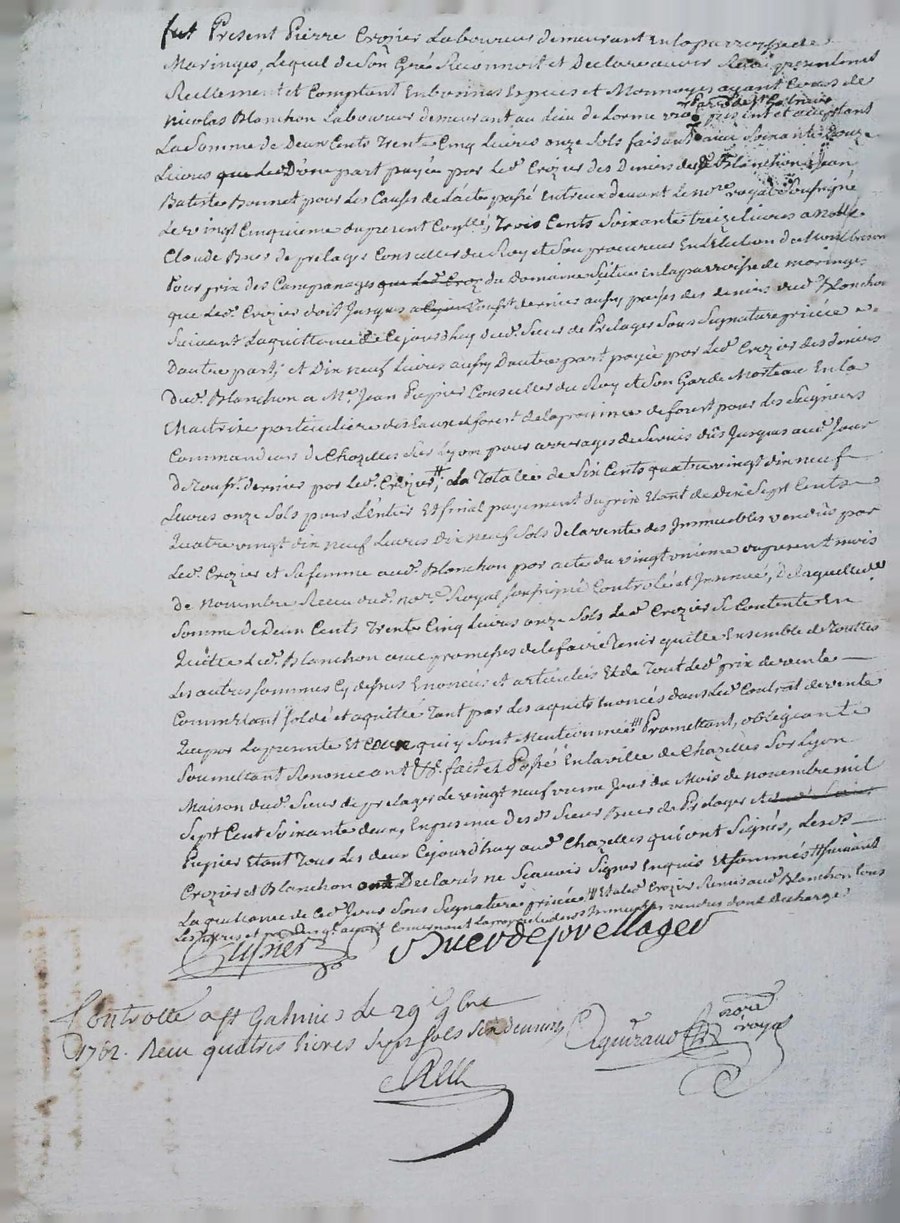 fut Présent Pierre Crozier Laboureur demeurant En la parroisse de
Maringes, Lequel de Son Gré Reconnoit et Declare avoir Receu presentement
Reellement et Comptant En bonnes Especes et Monnoyes ayant Cours de
Nicolas Blanchon Laboureur demeurant au Lieu de Lorme parr. de St Galmier present et aceptant
La Somme de Deux Cents Trente Cinq Livres onze Sols faisant avec Soixante
Livres D'une part payée par Led. Crozier des Deniers dud. Blanchon a Jean
Batiste Bonnet pour Les Causes de L'acte passé Entreux devant Le nore. royal Soussigné
Le vingt Cinquieme du present, Trois Cents Soixante treize Livres a
Claude Buer de prelages Conseiller du Roy et Son procureur En L'Election de Montbrison
Pour prix des Campanages que Led. Croz du Domaine Situé En la parroisse de maringes
que Led. Crozier doit Jusques a la Toussts. derniere aussy payés des deniers dud. Blanchon
Suivant La quittance de Cejourdhuy dud. Sieur de Prelages Sous Signature privée
Dautre part, et Dix Neuf Livres aussy Dautre part payée par Led. Crozier des deniers
Dud. Blanchon a Me. Jean Pupier Conseiller du Roy et Son Garde Marteau En la
Maitrize particuliere des Eaux et forest de la province de forest pour Les Seigneurs
Commandeurs de Chazelles Sur Lyon pour arrerages de Servis dûs Jusques aud. Jour
de Touss. derniere par Led. Crozier, La Totalle de Six Cents quatre vingt dix neuf
Livres onze Sols pour L'entier Et final payement du prix Etant de dix Sept Cents
Quatre vingt dix neuf Livres Dix neuf Sols de la vente des Immeubles vendus par
Led. Crozier et Sa femme aud. Blanchon par acte du vingt unieme du present mois
de novembre Receu dud. nore. Royal soussigné Controlé et Insinué, De laquelle
Somme de Deux Cents Trente Cinq Livres onze Sols Led. Crozier Se Contente En
Quitte Led. Blanchon avec promesses de le faire Tenir quitte Ensemble de Touttes
Les autres Sommes Cy dessus Enoncées et articulées Et de Tout Led. prix de vente
Comm' Etant Soldé et aquitté Tant par Les aquits Enoncés dans Led. Contrat de vente
Que par La presente Et Ceux qui y Sont Mentionnés Promettant, obligeant
Soumettant Renonceant &c. fait et Passé En la ville de Chazelles Sur Lyon
Maison dud. Sieur de prelages Le vingt neufvieme Jour du Mois de novembre mil
Sept Cent Soixante deux, En presence desd. Sieurs Buer de Prelages et
Pupier Etant Tous Les deux Cejourdhuy aud. Chazelles qui ont Signés, Lesd.
Crozier et Blanchon ont Declarés ne Scavoir Signer Enquis Et Sommés suivant
La quittance de Ce Jour Sous Signature privée Et a Led. Crozier Remis aud. Blanchon tous
Les titres et ayant Concernant La proprieté des Immeubles vendus dont decharge
Pupier Buer de prellages
Controllé a St Galmier Le 29 9bre
1762. Receu quatres livres Sept Sols Six deniers
nore
royal